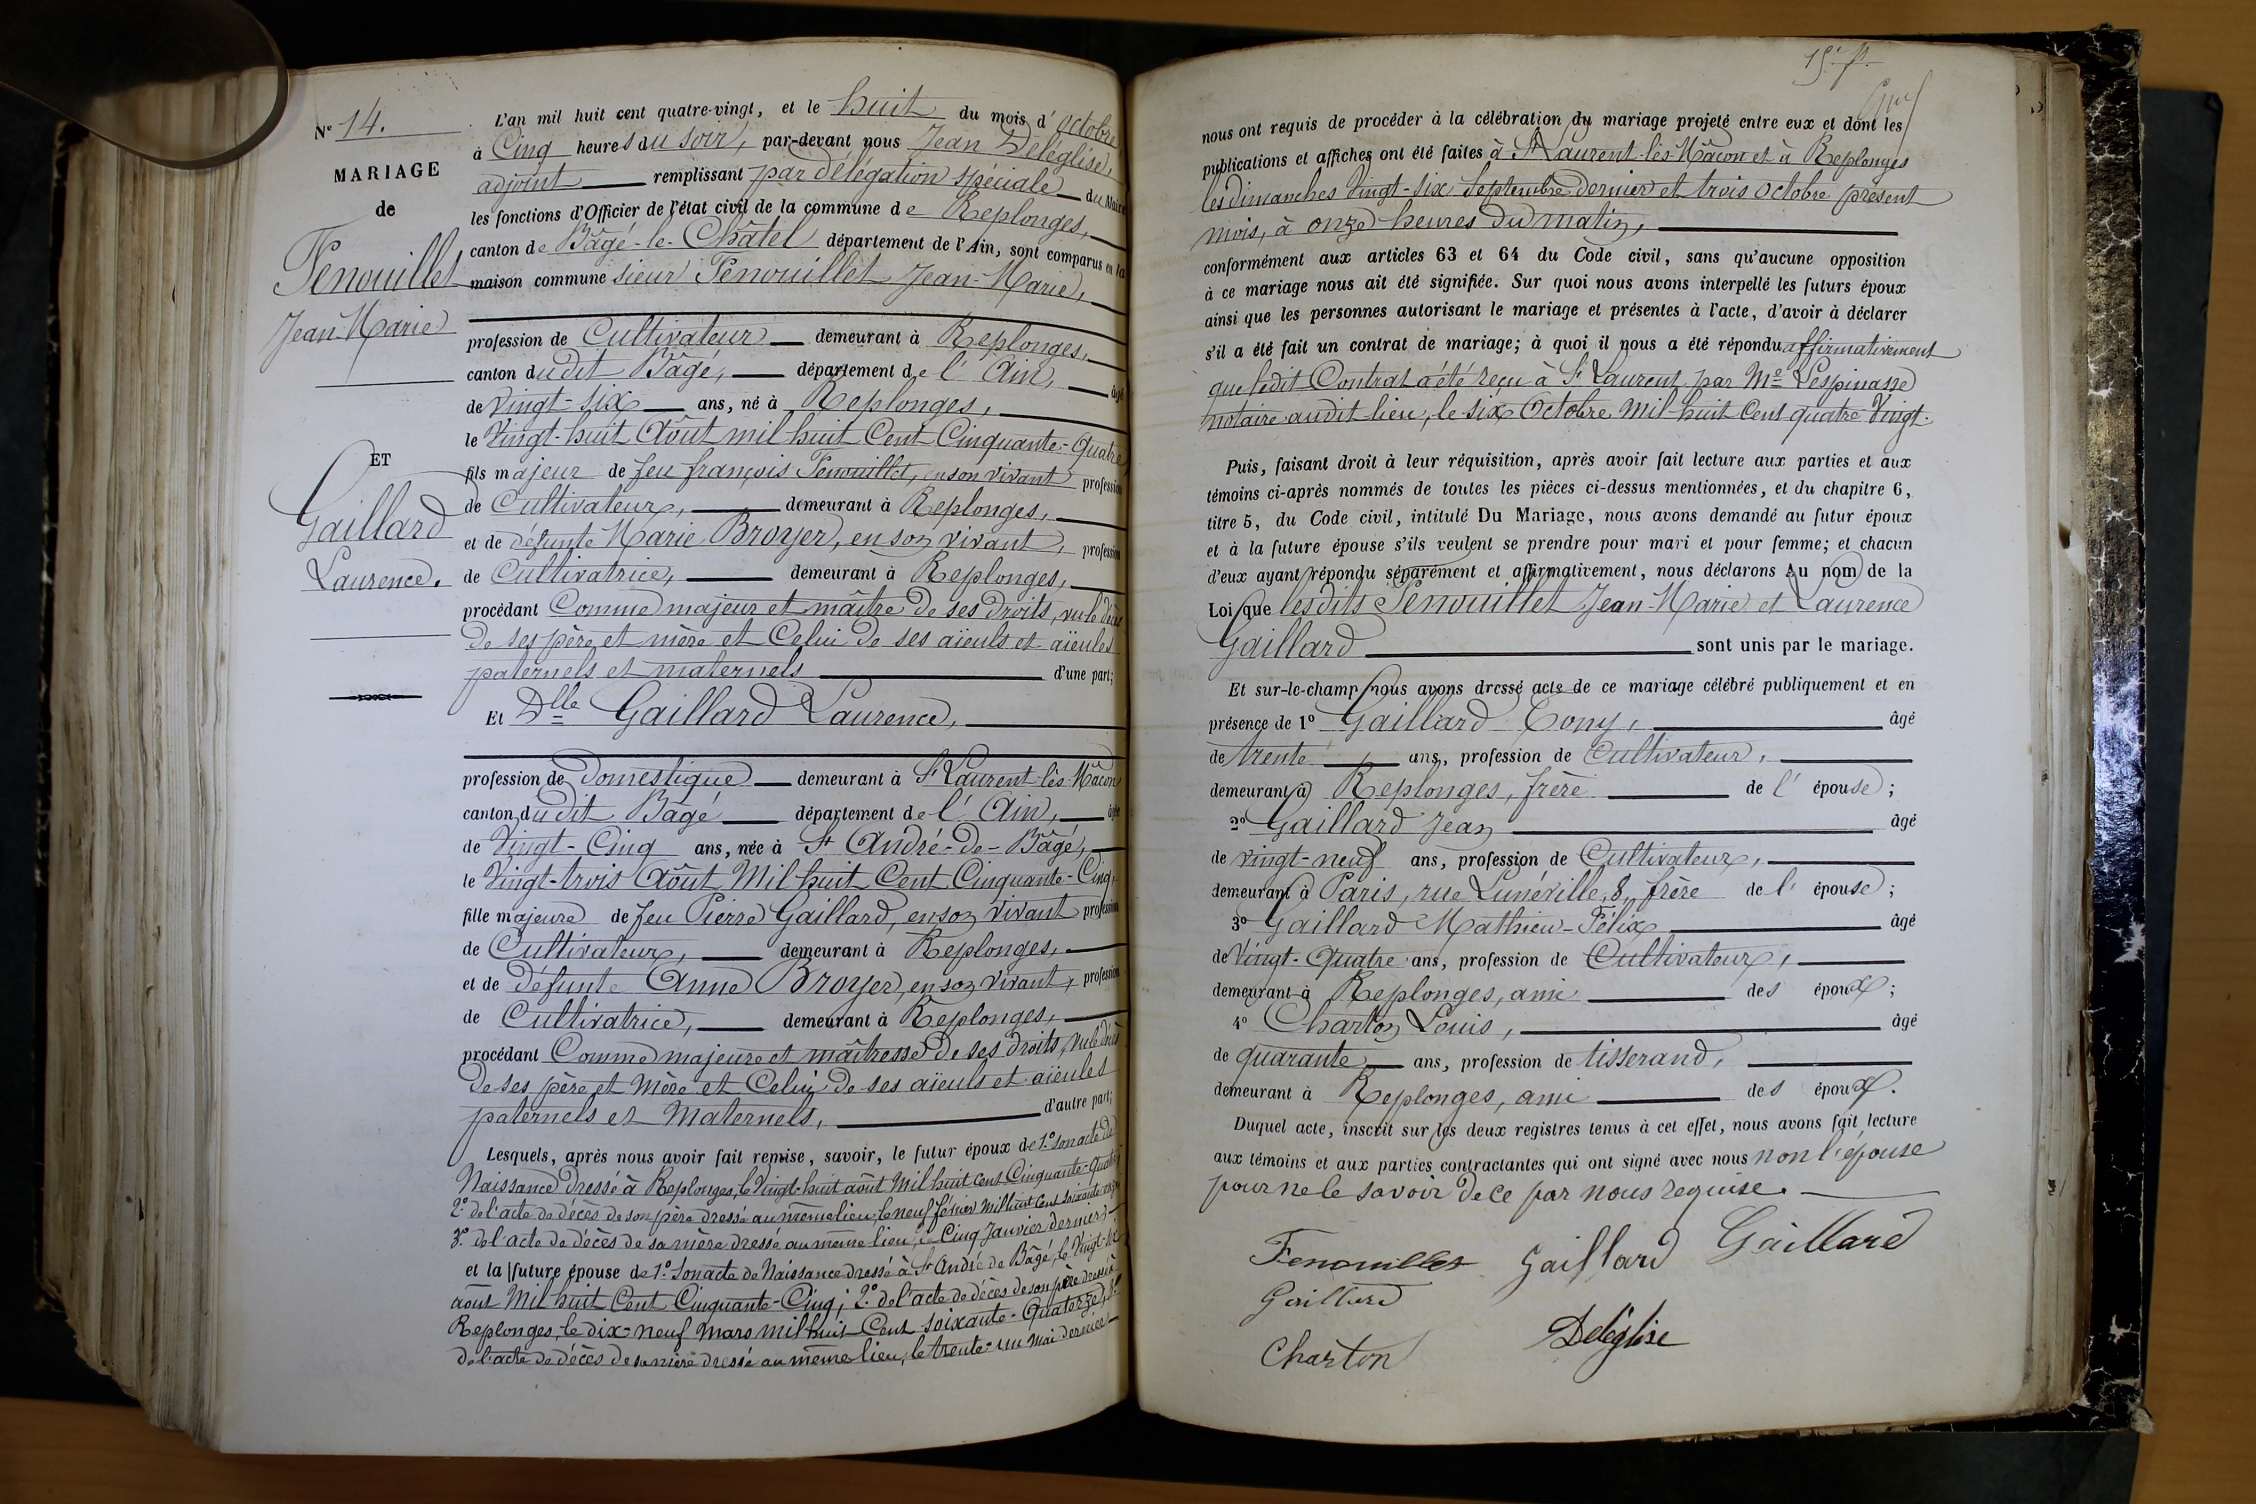 N° 14.
MARIAGE
de
Fenouillet
Jean-Marie
ET
Gaillard
Laurence.
L'an mil huit cent quatre-vingt, et le huit du mois d'octobre
à Cinq heures du soir, par-devant nous Jean Deléglise,
adjoint remplissant par délégation spéciale du Maire
les fonctions d'Officier de l'état civil de la commune de Replonges,
canton de Bâgé-le-Châtel département de l'Ain, sont comparus en la
maison commune sieur Fenouillet Jean-Marie,
profession de Cultivateur demeurant à Replonges,
canton dudit Bâgé, département de l'Ain, âgé
de Vingt-six ans, né à Replonges,
le Vingt-huit Août mil huit Cent Cinquante-Quatre
fils majeur de feu françois Fenouillet, en son vivant profession
de Cultivateur, demeurant à Replonges,
et de défunte Marie Broyer, en son vivant, profession
de Cultivatrice, demeurant à Replonges,
procédant Comme majeur et maître de ses droits, vu le décès
de ses père et mère et Celui de ses aïeuls et aïeules
paternels et maternels d'une part;
Et Dlle Gaillard Laurence,
profession de Domestique demeurant à St Laurent-lès-Mâcon
canton dudit Bâgé département de l'Ain, âgée
de Vingt-Cinq ans, née à St André-de-Bâgé,
le Vingt-trois Août Mil huit Cent Cinquante-Cinq,
fille majeure de feu Pierre Gaillard, en son vivant profession
de Cultivateur, demeurant à Replonges,
et de défunte Anne Broyer, en son vivant, profession
de Cultivatrice, demeurant à Replonges,
procédant Comme majeure et maîtresse de ses droits, vu le décès
de ses père et mère et Celui de ses aïeuls et aïeules
paternels et Maternels, d'autre part;
Lesquels, après nous avoir fait remise, savoir, le futur époux de 1° son acte de
Naissance dressé à Replonges, le Vingt-huit août Mil huit cent Cinquante-Quatre
2° de l'acte de décès de son père dressé au même lieu, le neuf février Mil huit Cent soixante
3° de l'acte de décès de sa mère dressé au même lieu, le Cinq Janvier dernier
et la future épouse de 1° Son acte de Naissance dressé à St André de Bâgé, le Vingt
août Mil huit Cent Cinquante-Cinq; 2° de l'acte de décès de son père dressé à
Replonges, le dix-neuf Mars mil huit Cent soixante-Quatorze, 3°
de l'acte de décès de sa mère dressé au même lieu, le trente-un Mai dernier
nous ont requis de procéder à la célébration du mariage projeté entre eux et dont les
publications et affiches ont été faites à St Laurent-lès-Mâcon et à Replonges
les dimanches Vingt-six Septembre dernier et trois octobre présent
mois, à onze heures du matin,
conformément aux articles 63 et 64 du Code civil, sans qu'aucune opposition
à ce mariage nous ait été signifiée. Sur quoi nous avons interpellé les futurs époux
ainsi que les personnes autorisant le mariage et présentes à l'acte, d'avoir à déclarer
s'il a été fait un contrat de mariage; à quoi il nous a été répondu affirmativement
que ledit Contrat a été reçu à St Laurent par Me Lespinasse
notaire audit lieu, le six Octobre Mil huit Cent quatre Vingt.
Puis, faisant droit à leur réquisition, après avoir fait lecture aux parties et aux
témoins ci-après nommés de toutes les pièces ci-dessus mentionnées, et du chapitre 6,
titre 5, du Code civil, intitulé Du Mariage, nous avons demandé au futur époux
et à la future épouse s'ils veulent se prendre pour mari et pour femme; et chacun
d'eux ayant répondu séparément et affirmativement, nous déclarons Au nom de la
Loi que lesdits Fenouillet Jean-Marie et Laurence
Gaillard sont unis par le mariage.
Et sur-le-champ nous avons dressé acte de ce mariage célébré publiquement et en
présence de 1° Gaillard Tony, âgé
de trente ans, profession de Cultivateur,
demeurant à Replonges, frère de l'épouse;
2° Gaillard Jean âgé
de vingt-neuf ans, profession de Cultivateur,
demeurant à Paris, rue Lunéville, 8, frère de l'épouse;
3° Gaillard Mathieu-Félix âgé
de Vingt-Quatre ans, profession de Cultivateur,
demeurant à Replonges, ami des époux;
4° Charton Louis, âgé
de quarante ans, profession de tisserand,
demeurant à Replonges, ami des époux.
Duquel acte, inscrit sur les deux registres tenus à cet effet, nous avons fait lecture
aux témoins et aux parties contractantes qui ont signé avec nous non l'épouse
pour ne le savoir de ce par nous requise.
Fenouillet Gaillard Gaillard
Gaillard
Charton Deléglise